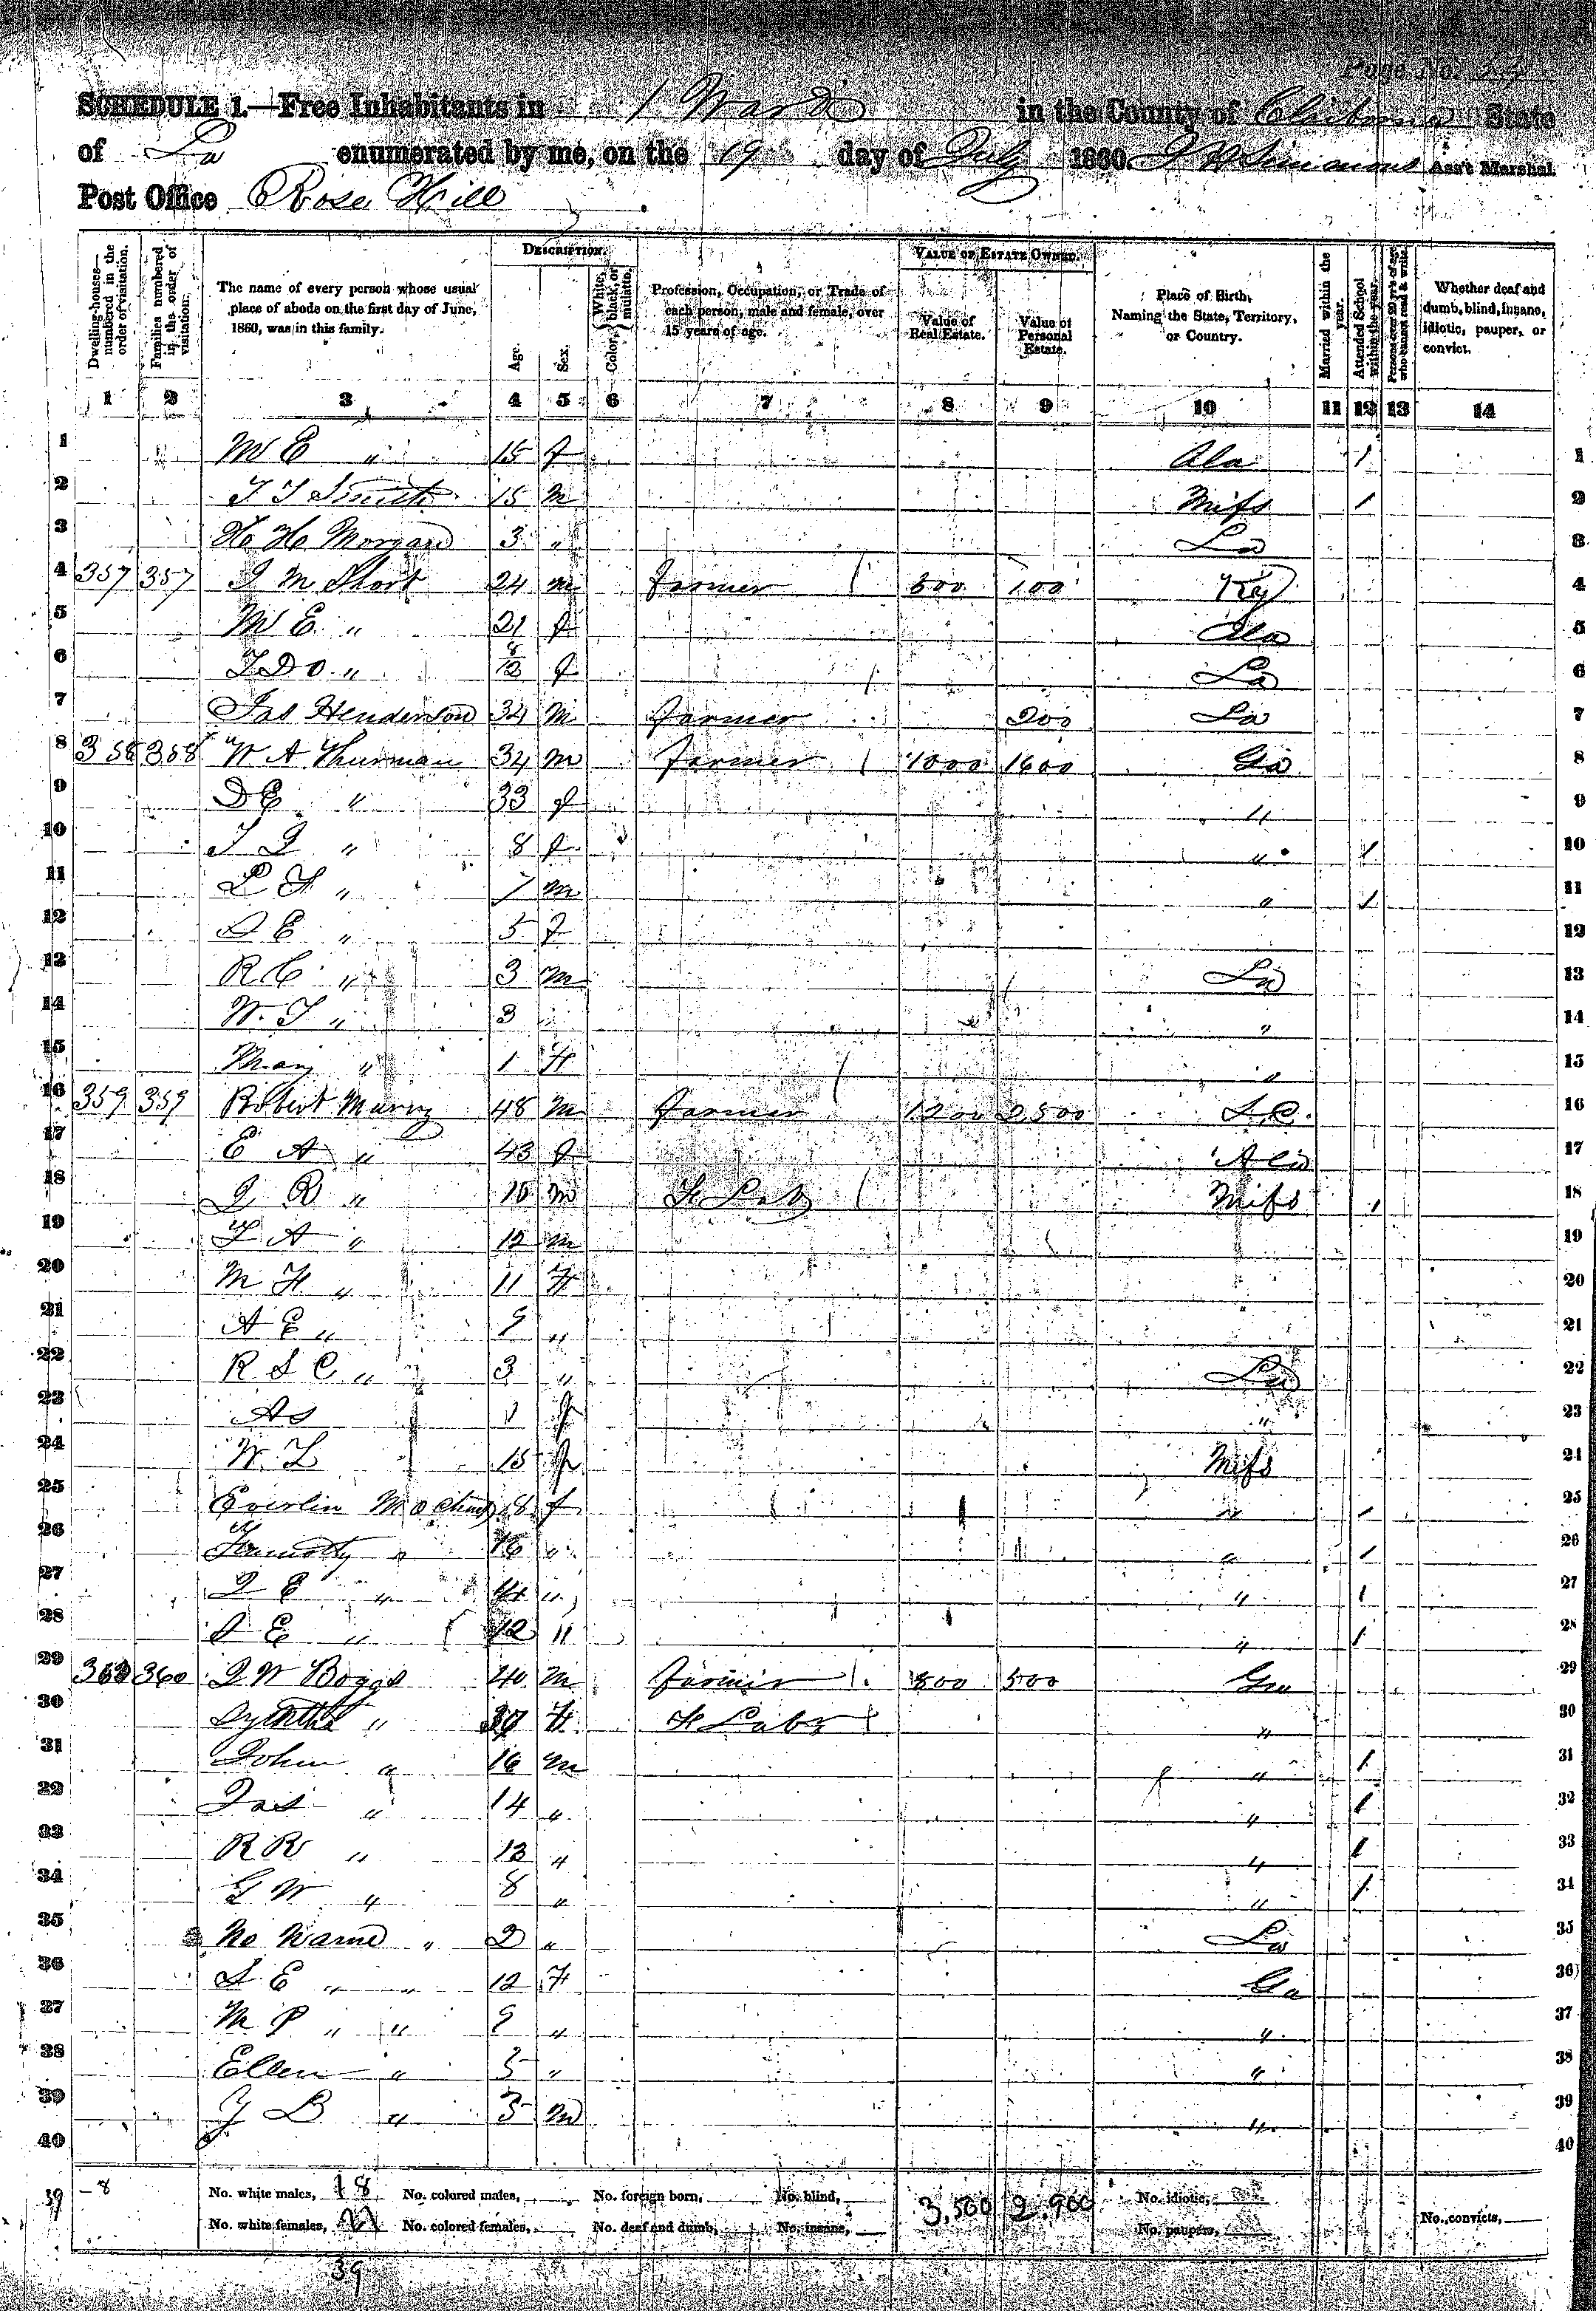 Page No.
SCHEDULE 1.—Free Inhabitants in 1 Ward in the County of Claiborne State
of La enumerated by me, on the 19 day of July 1860. Simmons Ass't Marshal.
Post Office Rose Hill
Dwelling-houses—numbered in the order of visitation. Families numbered in the order of visitation. The name of every person whose usual place of abode on the first day of June, 1860, was in this family. DESCRIPTION. Age. Sex. Color, { White, black, or mulatto. Profession, Occupation, or Trade of each person, male and female, over 15 years of age. VALUE OF ESTATE OWNED. Value of Real Estate. Value of Personal Estate. Place of Birth, Naming the State, Territory, or Country. Married within the year. Attended School within the year. Persons over 20 y'rs of age who cannot read & write. Whether deaf and dumb, blind, insane, idiotic, pauper, or convict.
1 2 3 4 5 6 7 8 9 10 11 12 13 14
1 M E " 15 f Ala / 1
2 Smith 15 m Miss / 2
3 H H Morgan 3 " La 3
4 357 357 J M Short 24 m farmer 100 Ky 4
5 M E " 21 f Ala 5
6 " 8/12 f La 6
7 Jas Henderson 34 M farmer 200 La 7
8 358 358 W A Thurman 34 m farmer 1000 1600 Ga 8
9 D E " 33 f " 9
10 " 8 f " / 10
11 " 7 m " / 11
12 E " 5 f 12
13 R C " 3 m La 13
14 W " 3 " 14
15 Mary " 1 F " 15
16 359 359 Robert Murry 48 M farmer 1200 2500 S.C. 16
17 E A " 43 f Ala 17
18 J R " 15 m F Labr Miss / 18
19 A " 12 m 19
20 M F " 11 F 20
21 A E " 9 " 21
22 R S C " 3 " La 22
23 A S 1 f " 23
24 W 15 f Miss 24
25 Everlin 18 f " / 25
26 " 16 " " / 26
27 J E " 14 " " / 27
28 E " 12 " " / 28
29 360 360 J W Boggs 40 M farmer 800 500 Ga 29
30 " F F Labr " 30
31 John " 16 m " / 31
32 Jas " 14 " " / 32
33 R R " 13 " " / 33
34 G W " 8 " " / 34
35 No Name " 2 " La 35
36 S E " " 12 F Ga 36
37 M P " " 9 " " 37
38 Ellen " 5 " " 38
39 B " m " 39
40 40
39 – 8 No. white males, 18 No. colored males, No. foreign born, No. blind, 3,500 2,900 No. idiotic,
No. white females, 21 No. colored females, No. deaf and dumb, No. insane, No. paupers, No. convicts,
39